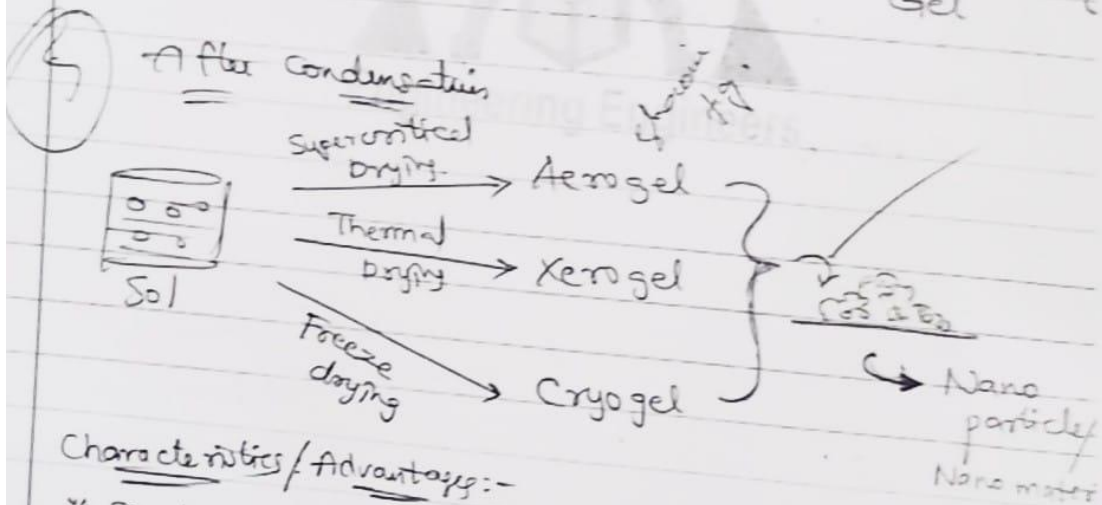 Gel
5
After Condensation
Engineering Engineers
Supercritical
Drying
Aerogel
Thermal
Drying
Xerogel
Sol
Freeze
drying
Cryogel
Nano
particles/
Nano mater
Characteristics/Advantages:-